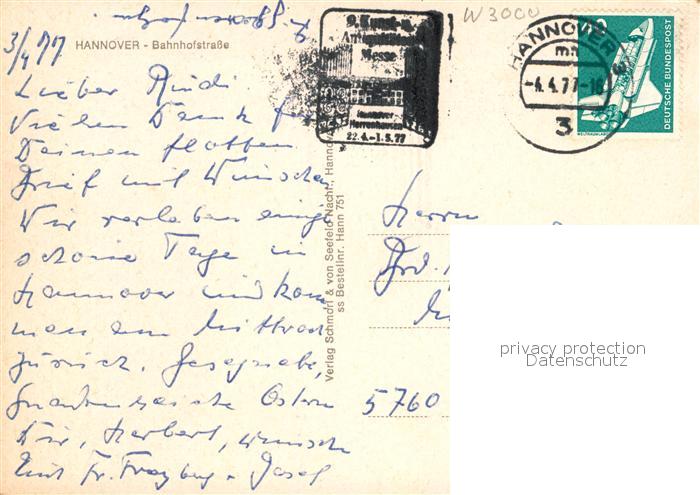 3/4 77
HANNOVER - Bahnhofstraße
Lieber Rudi
Vielen Dank für
Deinen flotten
Brief mit Wünschen
Wir verleben einige
schöne Tage in
Hannover und kom
men am Mittwoch
zurück. Gesegnete,
gnadenreiche Ostern
Dir, Herbert, wünscht
mit Josef
9. Kunst- u.
Antiquitäten
Messe
Hannover
Herrenhausen
22.4.-1.5.77
W 3000
HANNOVER
mn
-4.4.77-18
3
DEUTSCHE BUNDESPOST
Verlag Schmorl & von Seefeld Nachf., Hannover
ss Bestellnr. Hann 751
Herrn
5760
privacy protection
Datenschutz